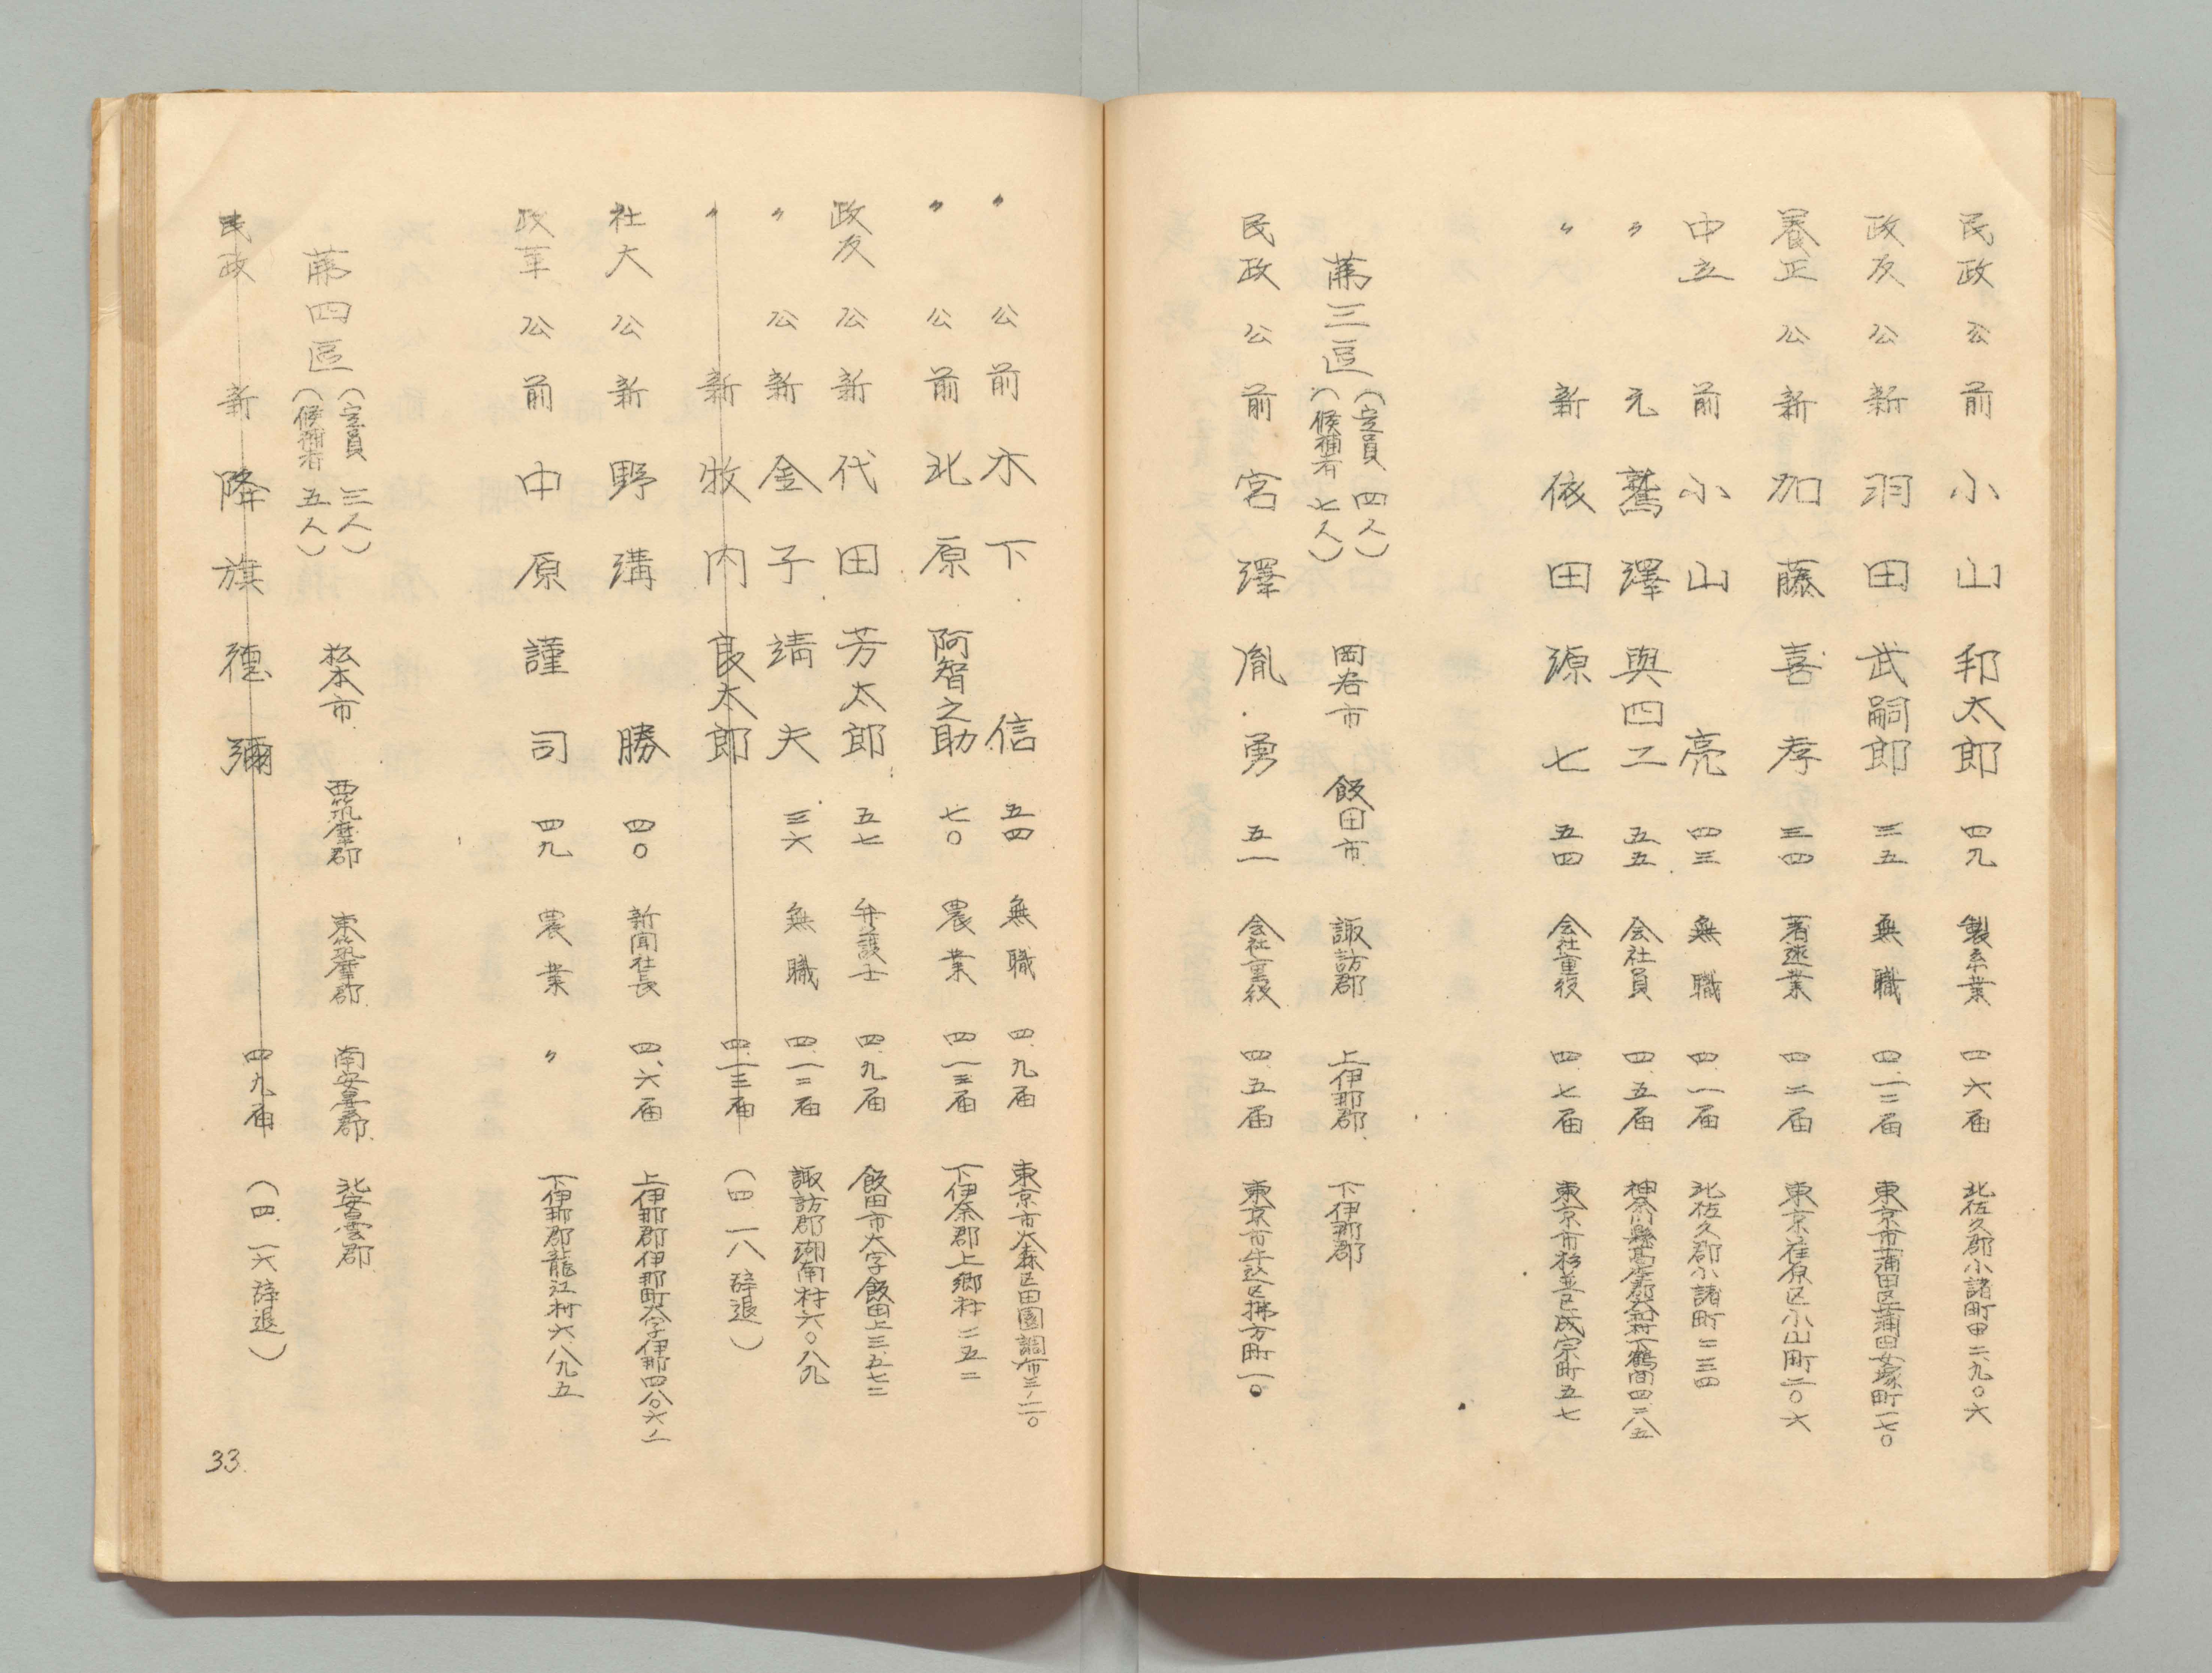 民政 公 前 小山邦太郎 四九 製糸業 四、六届 北佐久郡小諸町甲二、九〇六
政友 公 新 羽田武嗣郎 三五 無職 四、一二届 東京市蒲田区蒲田女塚町一七〇
養正 公 新 加藤喜孝 三四 著述業 四、二届 東京荏原区小山町二〇六
中立 前 小山亮 四三 無職 四、一届 北佐久郡小諸町二三四
〃 元 鷲澤與四二 五五 会社員 四、五届 神奈川縣高座郡大和村下鶴間四二八五
〃 新 依田源七 五四 会社重役 四、七届 東京市杉並区成宗町五七
第三區 (定員 四人) 岡谷市 飯田市 諏訪郡 上伊那郡 下伊那郡
(候補者 七人)
民政 公 前 宮澤胤勇 五一 会社重役 四、五届 東京市牛込区拂方町一〇
〃 公 前 木下信 五四 無職 四、九届 東京市大森区田園調布三ノ二〇
〃 公 前 北原阿智之助 七〇 農業 四、一三届 下伊奈郡上郷村二五二
政友 公 新 代田芳太郎 五七 弁護士 四、九届 飯田市大字飯田上三、五七二
〃 公 新 金子靖夫 三六 無職 四、一二届 諏訪郡湖南村六〇八九
〃 新 牧内良太郎 四、一三届 (四、一八辞退)
社大 公 新 野溝勝 四〇 新聞社長 四、六届 上伊那郡伊那町大字伊那
政革 公 前 中原謹司 四九 農業 〃 下伊那郡龍江村六、八九五
第四區 (定員 三人) 松本市 西筑摩郡 東筑摩郡 南安曇郡 北安曇郡
(候補者 五人)
民政 新 降旗徳彌 四、九届 (四、一六辞退)
33.